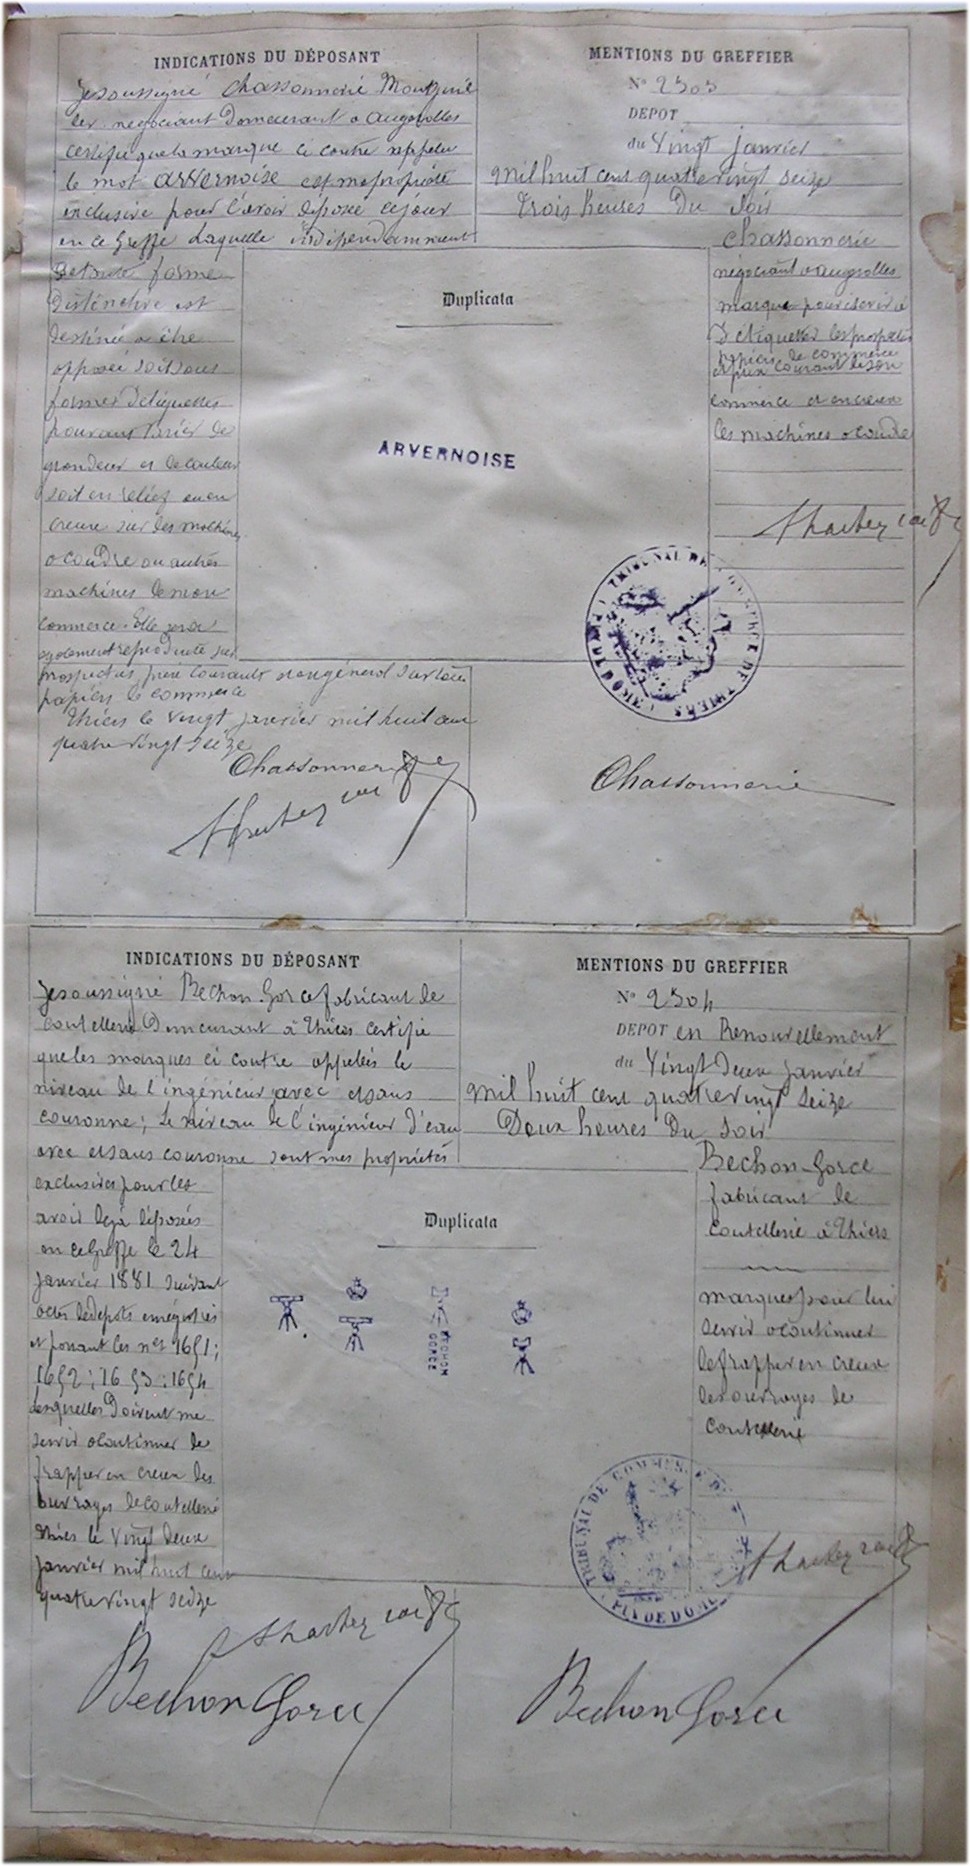 INDICATIONS DU DÉPOSANT
Je soussigné Chassonnerie
négociant Demeurant a augerolles
certifie que la marque ci contre appelée
le mot arvernoise est ma propriété
exclusive pour l'avoir déposée ce jour
en ce Greffe Laquelle indépendamment
De toute forme
Distinctive est
destinée a être
apposée soit sous
formes D'étiquettes
pouvant varier de
grandeur et de couleur
soit en relief ou en
creux sur des machines
a coudre ou autres
machines de mon
commerce. Elle sera
egalement reproduite sur
prospectus, prix courants et en général sur tous
papiers de commerce
Thiers le vingt janvier mil huit cent
quatre vingt seize
Chassonnerie
MENTIONS DU GREFFIER
N° 2303
DEPOT
du Vingt janvier
mil huit cent quatre vingt seize
Trois heures Du Soir
Chassonnerie
négociant a augerolles
marque pour servir a
D'etiquettes les prospectus
papiers de commerce
et prix courant de son
commerce et en creux
les machines a coudre
Duplicata
ARVERNOISE
TRIBUNAL DE COMMERCE DE THIERS
Chassonnerie
INDICATIONS DU DÉPOSANT
Je soussigné Bechon-Gorce fabricant de
coutellerie Demeurant à Thiers certifie
que les marques ci contre appelées le
niveau de l'ingénieur avec et sans
couronne; Le niveau de l'ingénieur d'eau
avec et sans couronne sont mes propriétés
exclusives pour les
avoir déjà déposées
en ce Greffe le 24
janvier 1881 suivant
actes de depots enregistrés
et portant les nos 1651;
1652; 1653; 1654
desquelles Doivent me
servir a continuer de
frapper en creux des
ouvrages de coutellerie
Thiers le vingt deux
janvier mil huit cent
quatre vingt seize
Bechon Gorce
MENTIONS DU GREFFIER
N° 2304
DEPOT en Renouvellement
du Vingt Deux janvier
mil huit cent quatre vingt seize
Deux heures Du Soir
Bechon-Gorce
fabricant de
coutellerie à Thiers
marques pour lui
servir a continuer
de frapper en creux
des ouvrages de
coutellerie
Duplicata
BECHON
GORCE
TRIBUNAL DE COMMERCE DE
PUY DE DOME
Bechon Gorce